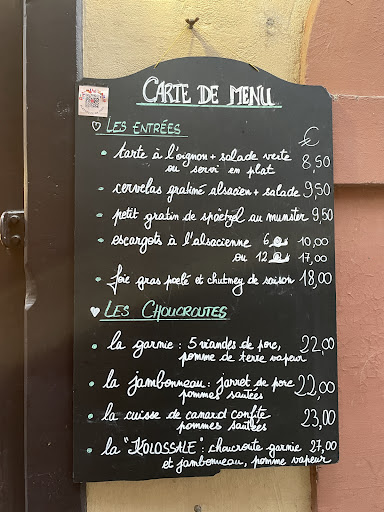 CARTE DE MENU
LES ENTRÉES €
• tarte à l'oignon + salade verte
ou servi en plat 8,50
• cervelas gratiné alsacien + salade 9,50
• petit gratin de spàetzel au munster 9,50
• escargots à l'alsacienne 6 10,00
ou 12 17,00
• foie gras poelé et chutney de saison 18,00
LES CHOUCROUTES
• la garnie : 5 viandes de porc, 22,00
pomme de terre vapeur
• la jambonneau : jarret de porc 22,00
pommes sautées
• la cuisse de canard confite 23,00
pommes sautées
• la "KOLOSSALE" : choucroute garnie 27,00
et jambonneau, pomme vapeur